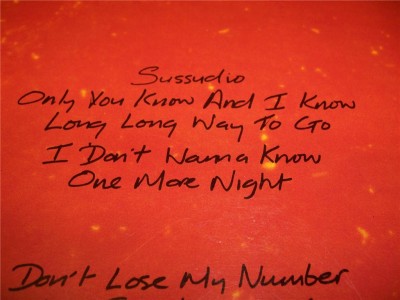 Sussudio
Only You Know And I Know
Long Long Way To Go
I Don't Wanna Know
One More Night
Don't Lose My Number